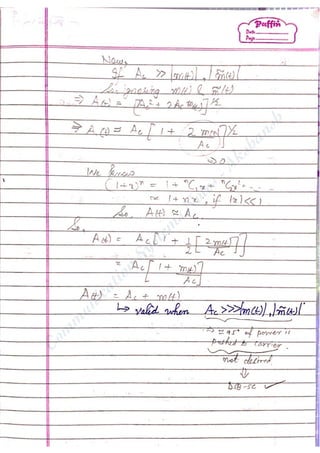 Puffin
Date
Page
Now,
If Ac >> |m(t)|, |m̃(t)|
m(t) & m̃(t)
⇒ A(t) = [Ac² + 2Ac m(t)]^½
⇒ A(t) = Ac [1 + 2m(t)/Ac]^½
We know
(1+x)ⁿ = 1 + ⁿC₁x + ⁿC₂x² ..
≈ 1 + nx, if |x|<<1
So, A(t) ≈ Ac
So,
A(t) = Ac [1 + 1/2 [2m(t)/Ac]]
= Ac [1 + m(t)/Ac]
A(t) = Ac + m(t)
↳ valid when Ac >>> |m(t)|, |m̃(t)|
of power is
pushed to carrier.
not desired
⇓
DSB-SC ✓